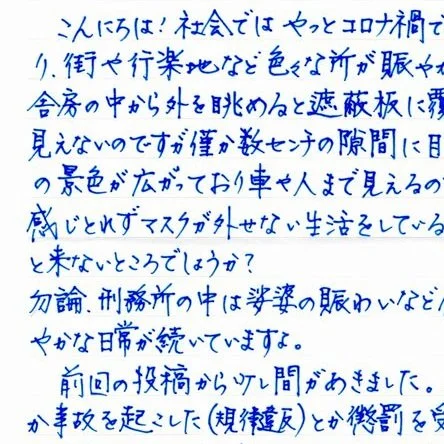 こんにちは！社会では やっとコロナ禍で
り、街や行楽地など色々な所が賑やか
舎房の中から外を眺めると遮蔽板に覆
見えないのですが僅か数センチの隙間に目
の景色が広がっており車や人まで見えるの
感じとれずマスクが外せない生活をしている
と来ないところでしょうか？
勿論、刑務所の中は娑婆の賑わいなど
やかな日常が続いていますよ。
前回の投稿から少し間があきました。
か事故を起こした(規律違反)とか懲罰を受